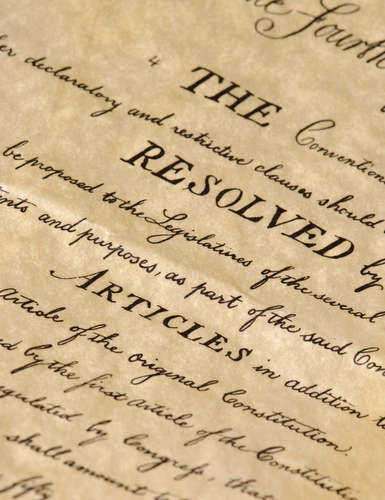 the Fourth
THE Convention
declaratory and restrictive clauses should
RESOLVED by
be proposed to the Legislatures of the several
and purposes, as part of the said Con
ARTICLES in addition
Article of the original Constitution.
by the first article of the Constitution
regulated by Congress, that
shall amount